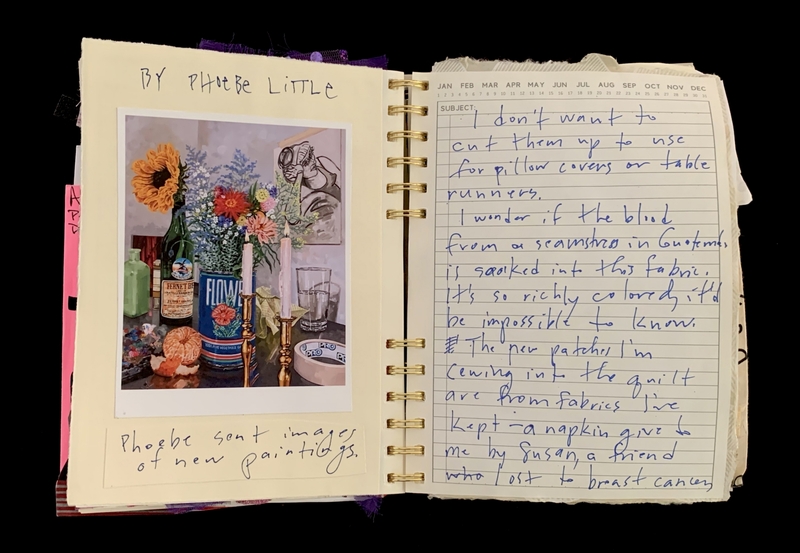 BY PHOEBE LITTLE
FERNET
FLOWE
PRO
Phoebe sent images
of new paintings.
JAN FEB MAR APR MAY JUN JUL AUG SEP OCT NOV DEC
SUBJECT:
I don't want to
cut them up to use
for pillow covers or table
runners.
I wonder if the blood
from a seamstress in Guatemala
is soaked into this fabric.
It's so richly colored, it'd
be impossible to know.
The new patches I'm
sewing into the quilt
are from fabrics I've
kept - a napkin give to
me by Susan, a friend
who I lost to breast cancer,